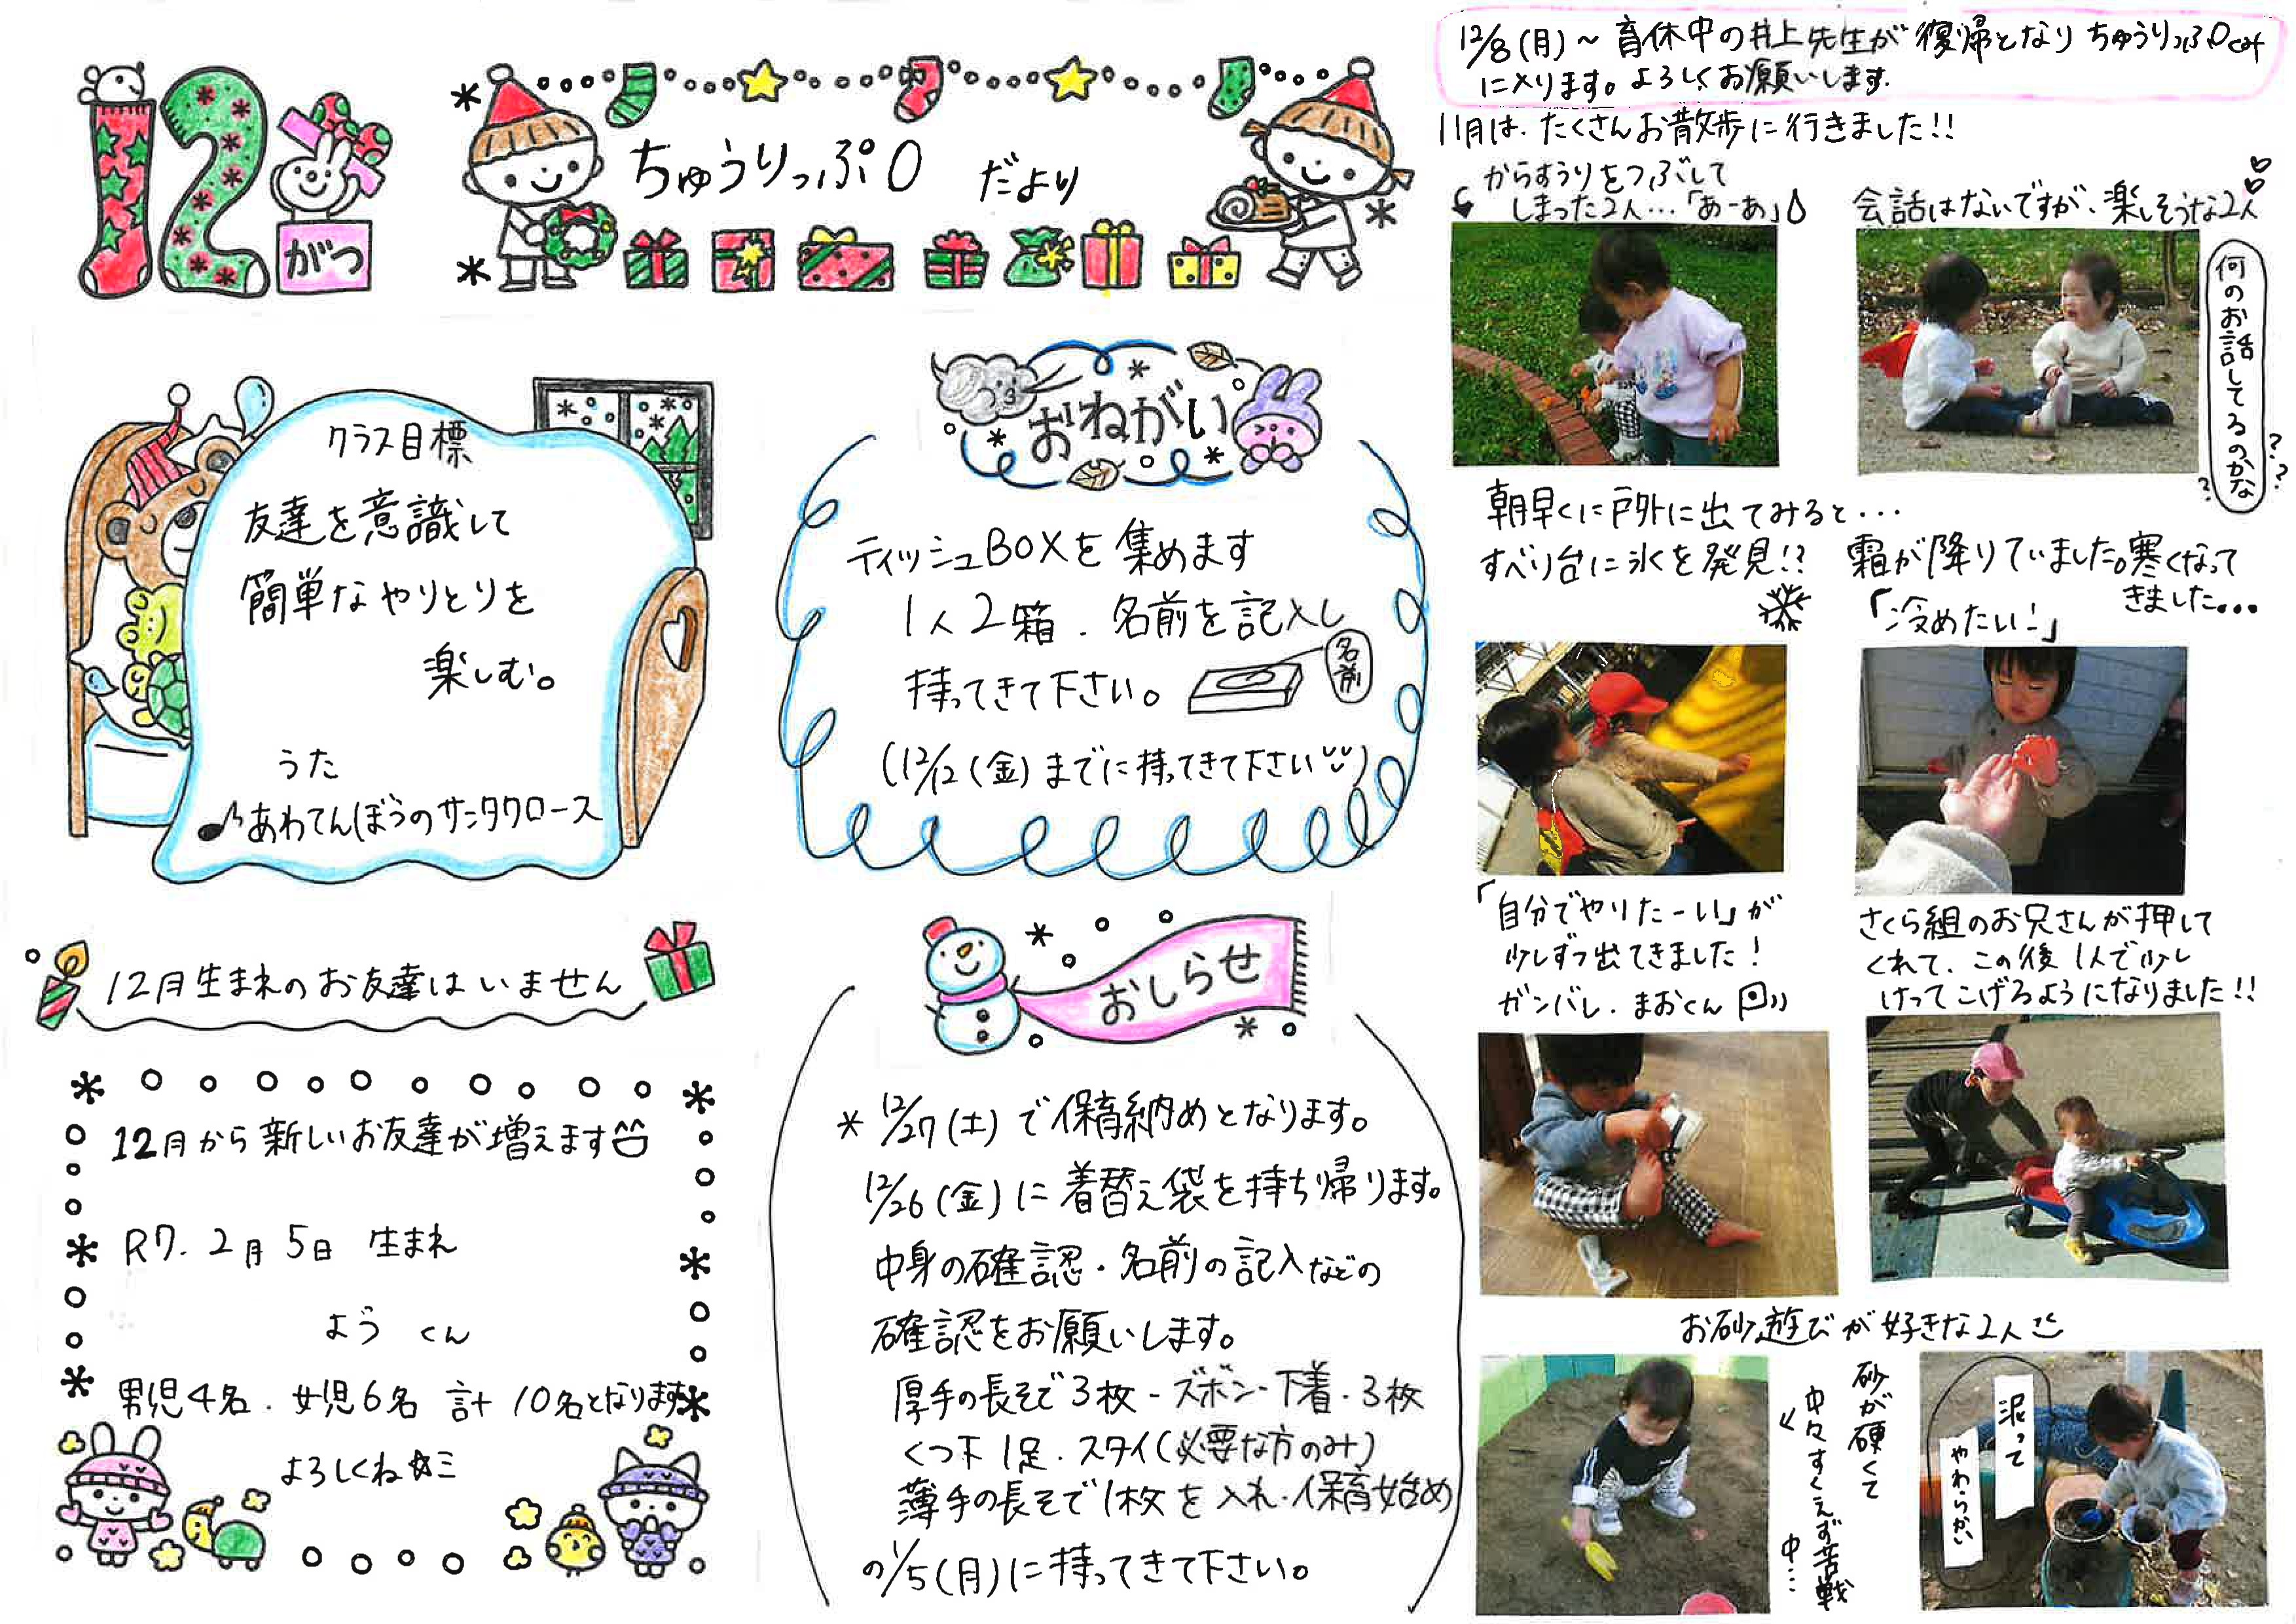 12
がつ
ちゅうりっぷ0 だより
クラス目標
友達を意識して
簡単なやりとりを
楽しむ。
うた
♪あわてんぼうのサンタクロース
おねがい
ティッシュBOXを集めます
1人2箱．名前を記入し
持ってきて下さい。
名前
(12/12(金)までに持ってきて下さい)
12月生まれのお友達はいません
12月から新しいお友達が増えます
R7.2月5日 生まれ
よう くん
男児4名．女児6名 計 10名となります
よろしくね☆ミ
おしらせ
* 12/27(土)で保育納めとなります。
12/26(金)に着替え袋を持ち帰ります。
中身の確認・名前の記入などの
確認をお願いします。
厚手の長そで3枚-ズボン-下着・3枚
くつ下1足．スタイ(必要な方のみ)
薄手の長そで1枚を入れ・保育始め
の1/5(月)に持ってきて下さい。
12/8(月)~育休中の井上先生が復帰となりちゅうりっぷ0くみ
に入ります。よろしくお願いします.
11月は．たくさんお散歩に行きました!!
からすうりをつぶして
しまった2人…「あーあ」
会話はないですが、楽しそうな2人
何のお話してるのかな
???
朝早くに戸外に出てみると...
すべり台に氷を発見!?
霜が降りていました。寒くなって
きました...
「冷めたい!」
「自分でやりたーい」が
少しずつ出てきました!
ガンバレ．まおくん
さくら組のお兄さんが押して
くれて、この後1人で少し
けってこげるようになりました!!
お砂遊びが好きな2人
砂が硬くて
中々すくえず苦戦
中…
泥って
やわらかい